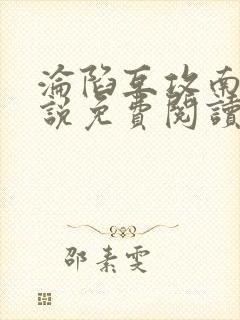 淪陷互攻南
說免費閱讀
邵素雯